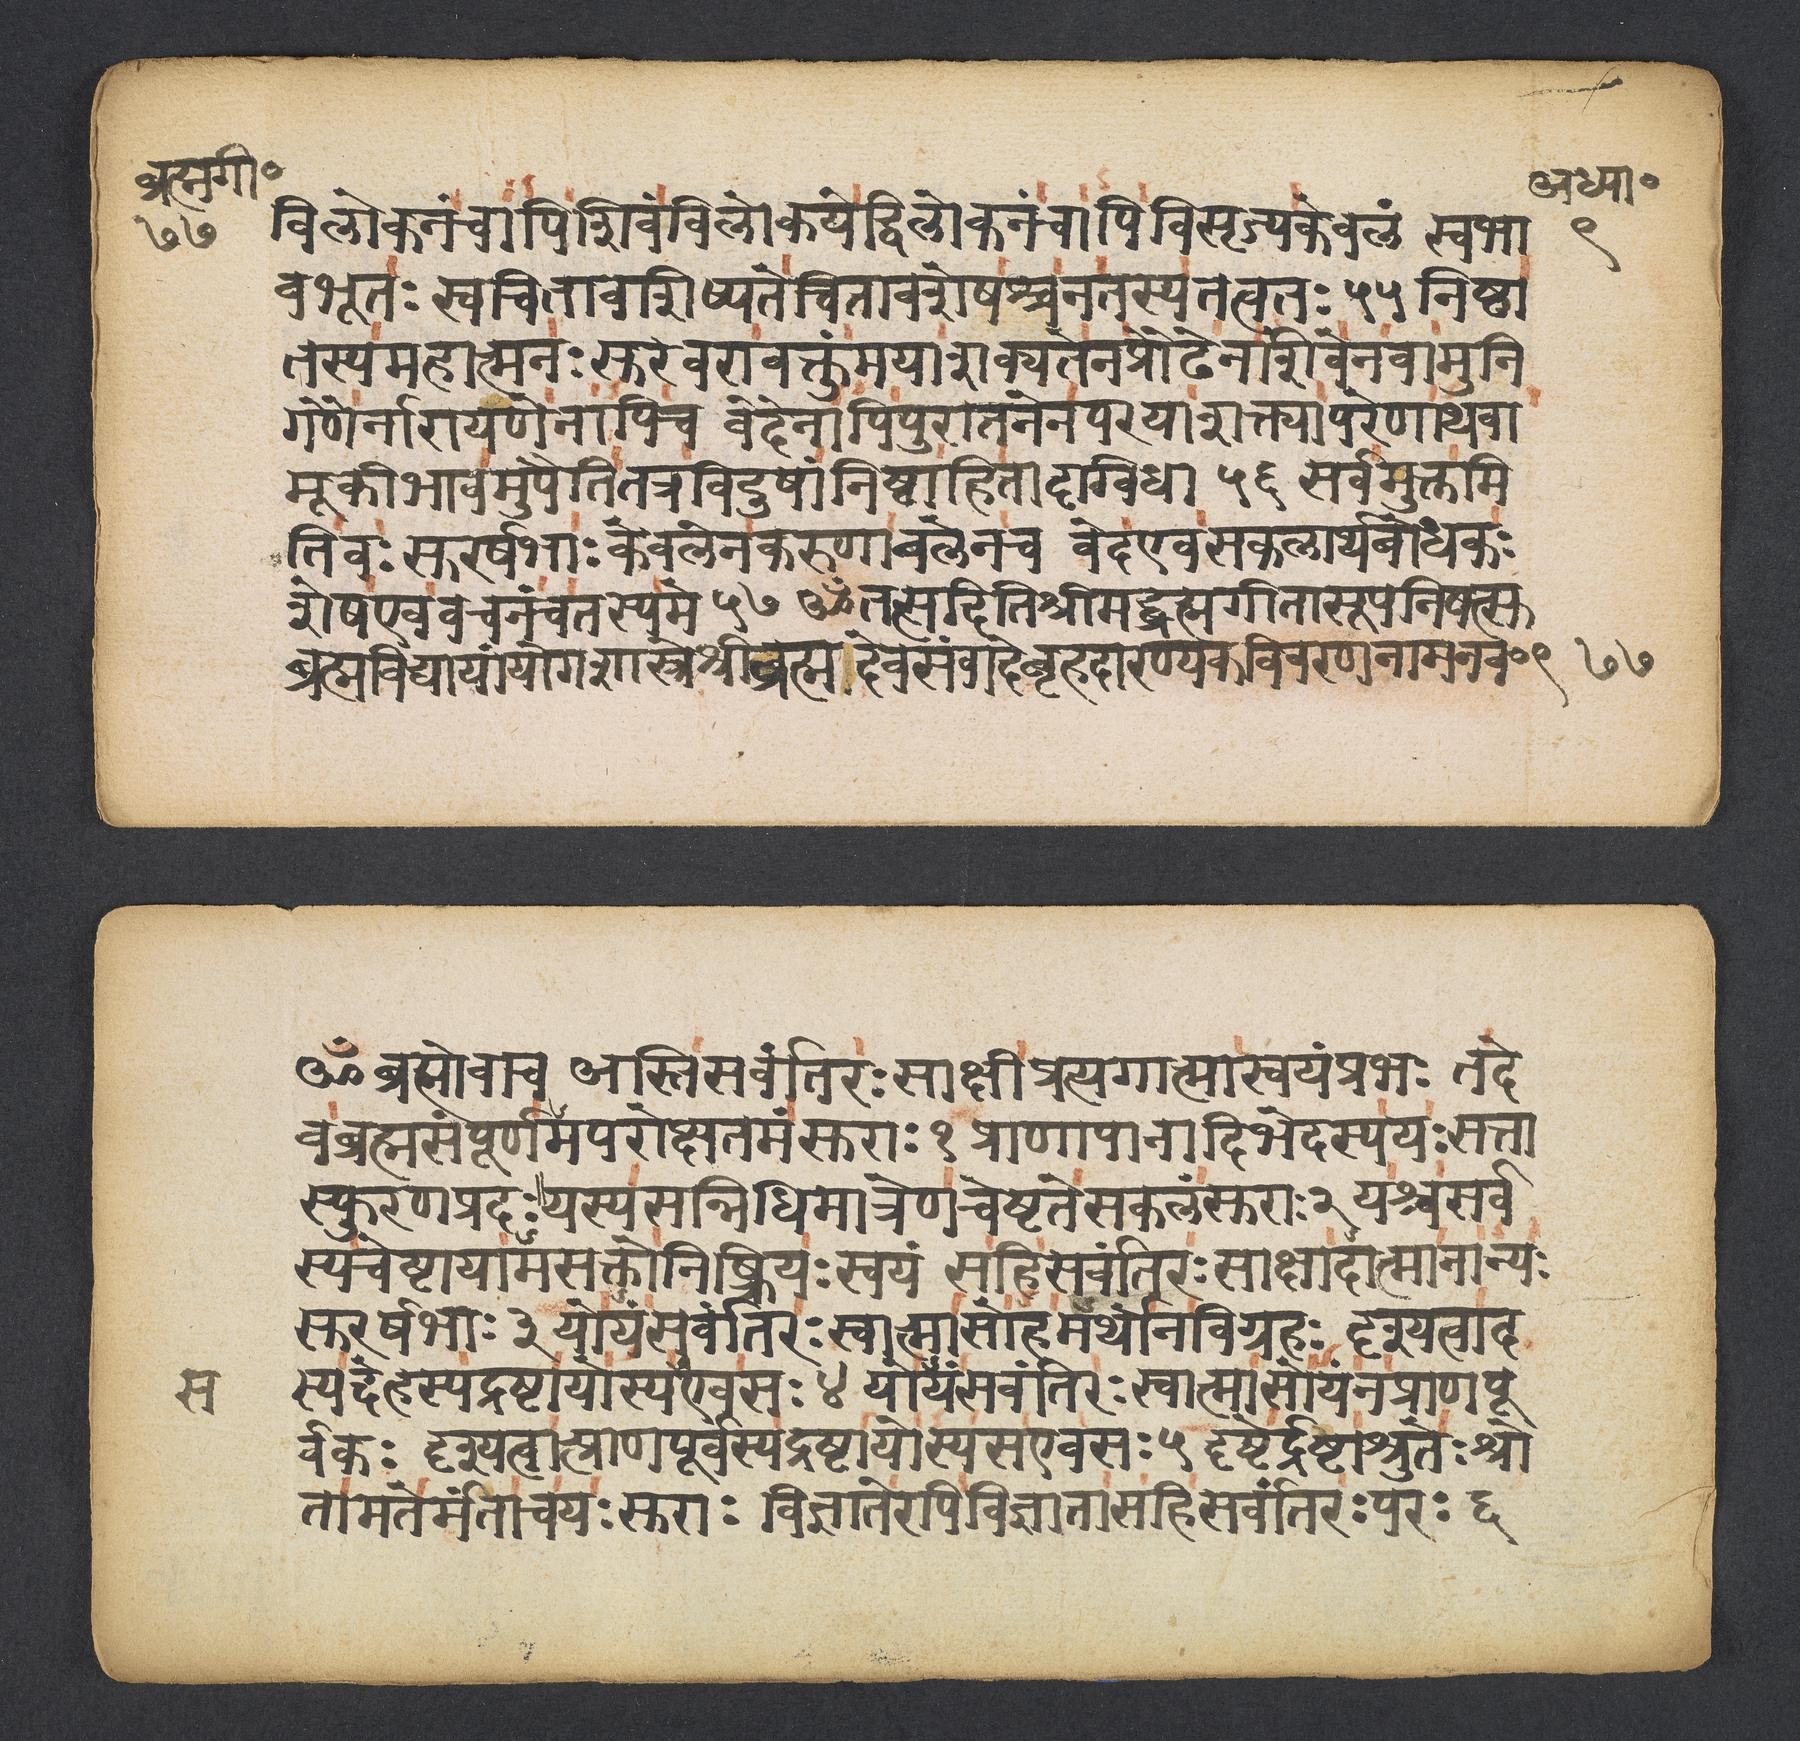 ब्रह्मगी॰
७७
अध्या॰
९
विलोकनंचापिशिवंविलोकयेद्विलोकनंचापिविसृज्यकेवलं स्वभा
वभूतः स्वचितावशिष्यतेचितावशेषश्चनतस्यतत्वतः ५५ निष्ठा
तस्यमहात्मनः सुरवरावक्तुंमयाशक्यतेनप्रौढेनशिवेनवामुनि
गणैर्नारायणेनापिच वेदेनापिपुरातनेनपरयाशक्त्यापरेणाथवा
मूकीभावमुपैतितत्रविदुषांनिष्ठाहितादृग्विधा ५६ सर्वमुक्तमि
तिवः सुरर्षभाः केवलेनकरुणाबलेनच वेदएवसकलार्थबोधकः
शेषएववचनंचतस्यमे ५७ ॐतत्सदितिश्रीमद्ब्रह्मगीतासूपनिषत्सु
ब्रह्मविद्यायांयोगशास्त्रेश्रीब्रह्मदेवसंवादेबृहदारण्यकविवरणनामनव॰९ ७७
ॐ ब्रह्मोवाच अस्तिसर्वांतरः साक्षीप्रत्यगात्मास्वयंप्रभः तदे
वब्रह्मसंपूर्णमपरोक्षतमंसुराः १ प्राणापानादिभेदस्ययः सत्ता
स्फुरणप्रदः यस्यसन्निधिमात्रेणचेष्टतेसकलंसुराः २ यश्चसर्व
स्यचेष्टायामसक्तोनिष्क्रियः स्वयं सहिसर्वांतरः साक्षादात्मानान्यः
सुरर्षभाः ३ योयंसर्वांतरः स्वात्मासोहमर्थनिविग्रहः दृश्यत्वाद
स्यदेहस्यद्रष्टायोस्यएवसः ४ योयंसर्वांतरः स्वात्मासोयंनप्राणपू
स
र्वकः दृश्यत्वात्प्राणपूर्वस्यद्रष्टायोस्यसएवसः ५ दृष्टेर्द्रष्टाश्रुतेः श्रो
तामतेर्मंताचयः सुराः विज्ञातेरपिविज्ञातासहिसर्वांतरः परः ६